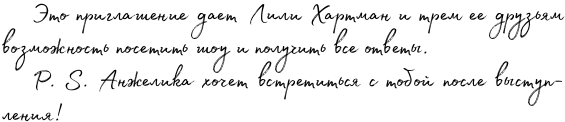 Это приглашение дает Лили Хартман и трем ее друзьям
возможность посетить шоу и получить все ответы.
P. S. Анжелика хочет встретиться с тобой после выступ-
ления!